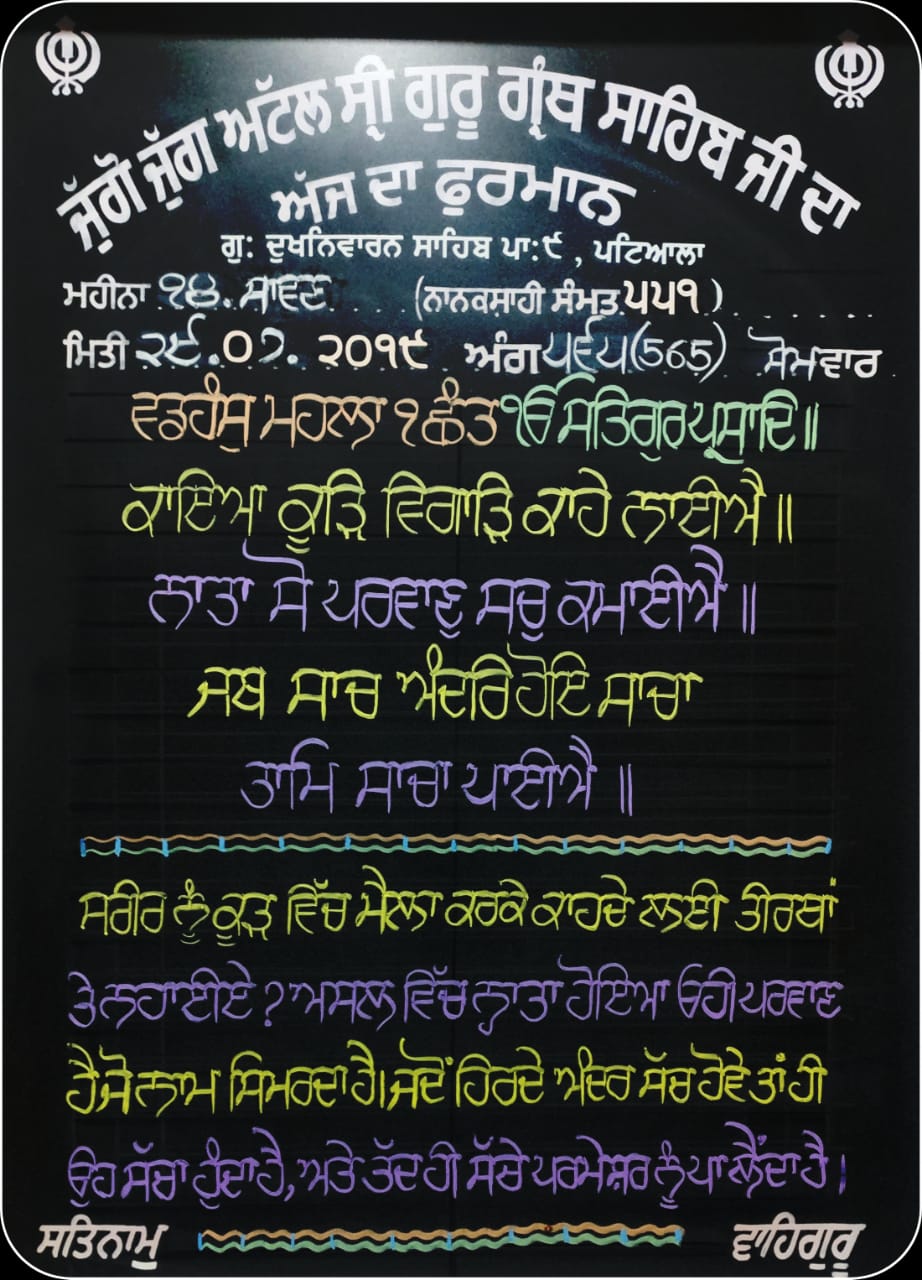 ਜੁੱਗੋ ਜੁੱਗ ਅਟੱਲ ਸ੍ਰੀ ਗੁਰੂ ਗ੍ਰੰਥ ਸਾਹਿਬ ਜੀ ਦਾ
ਅੱਜ ਦਾ ਫੁਰਮਾਨ
ਗੁ: ਦੁਖਨਿਵਾਰਨ ਸਾਹਿਬ ਪਾ:੯ , ਪਟਿਆਲਾ
ਮਹੀਨਾ ੧੪. ਸਾਵਣ (ਨਾਨਕਸ਼ਾਹੀ ਸੰਮਤ ੫੫੧)
ਮਿਤੀ ੨੯.੦੭. ੨੦੧੯ ਅੰਗ ੫੬੫(565) ਸੋਮਵਾਰ
ਵਡਹੰਸੁ ਮਹਲਾ ੧ ਛੰਤ ੴ ਸਤਿਗੁਰ ਪ੍ਰਸਾਦਿ॥
ਕਾਇਆ ਕੂੜਿ ਵਿਗਾੜਿ ਕਾਹੇ ਨਾਈਐ॥
ਨਾਤਾ ਸੋ ਪਰਵਾਣੁ ਸਚੁ ਕਮਾਈਐ॥
ਜਬ ਸਾਚ ਅੰਦਰਿ ਹੋਇ ਸਾਚਾ
ਤਾਮਿ ਸਾਚਾ ਪਾਈਐ॥
ਸਰੀਰ ਨੂੰ ਕੂੜ ਵਿੱਚ ਮੈਲਾ ਕਰਕੇ ਕਾਹਦੇ ਲਈ ਤੀਰਥਾਂ
ਤੇ ਨਹਾਈਏ? ਅਸਲ ਵਿੱਚ ਨ੍ਹਾਤਾ ਹੋਇਆ ਓਹੀ ਪਰਵਾਣ
ਹੈ ਜੋ ਨਾਮ ਸਿਮਰਦਾ ਹੈ। ਜਦੋਂ ਹਿਰਦੇ ਅੰਦਰ ਸੱਚ ਹੋਵੇ ਤਾਂ ਹੀ
ਉਹ ਸੱਚਾ ਹੁੰਦਾ ਹੈ, ਅਤੇ ਤੱਦ ਹੀ ਸੱਚੇ ਪਰਮੇਸ਼ਰ ਨੂੰ ਪਾ ਲੈਂਦਾ ਹੈ।
ਸਤਿਨਾਮੁ ਵਾਹਿਗੁਰੂ